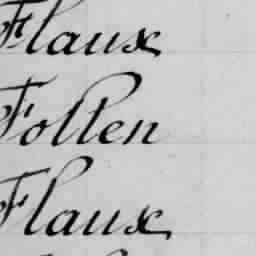 Flaux
Follen
Flaux